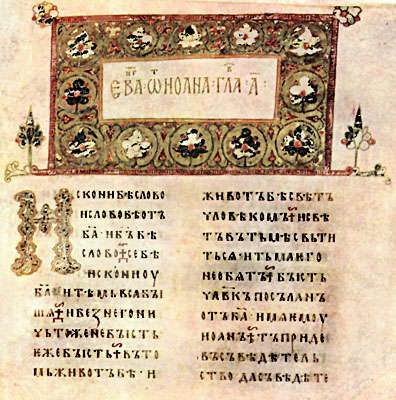 ЕВА · Ѡ ИОАНА · ГЛА · А ·
ИСКОНИ БѢ СЛОВО
И СЛОВО БѢ ОТЪ
БА҃ · И БЪ҃ БѢ
СЛОВО ⁘ СЕ БѢ
ИСКОНИ ОУ
БА҃ · И ТѢМЬ ВЬСА БꙐ
ШѦ ⁘ И БЕꙀ НЕГО НИ
ЧЬТОЖЕ НЕ БꙐСТЬ
ѤЖЕ БꙐСТЬ ⁘ ВЪ ТО
МЬ ЖИВОТЪ БѢ · И
ЖИВОТЪ БѢ СВѢТЪ
ЧЛОВѢКОМЪ ⁘ И СВѢ
ТЪ ВЪ ТЬМѢ СВЬТИ
ТЬСѦ · И ТЬМА ѤГО
НЕ ОБѦТЪ ⁘ БꙐСТЬ
ЧЛ҃ВКЪ ПОСЪЛАНЪ
ОТЪ БА҃ · ИМѦ ѤМОУ
ИОАНЪ ⁘ ТЪ ПРИДЕ
ВЪ СЪВѢДѢТЕЛЬ
СТВО ДА СЪВѢДѢТЕ